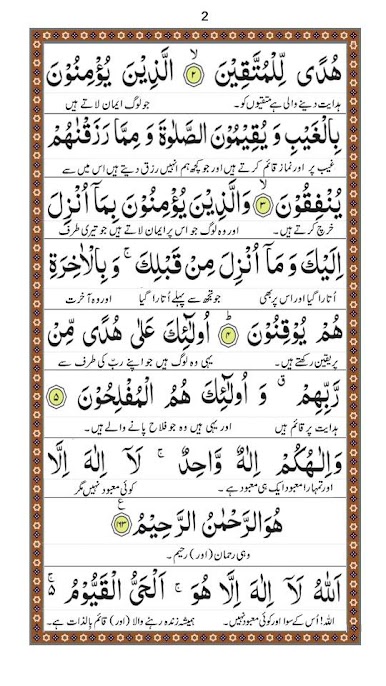 2
هُدًى لِّلْمُتَّقِيْنَ ۙ‏ ﴿۲﴾ الَّذِيْنَ يُؤْمِنُوْنَ
ہدایت دینے والی ہے متقیوں کو۔ جو لوگ ایمان لاتے ہیں
بِالْغَيْبِ وَ يُقِيْمُوْنَ الصَّلٰوةَ وَ مِمَّا رَزَقْنٰهُمْ
غیب پر اور نماز قائم کرتے ہیں اور جو کچھ ہم انہیں رزق دیتے ہیں اس میں سے
يُنْفِقُوْنَ ۙ‏ ﴿۳﴾ وَالَّذِيْنَ يُؤْمِنُوْنَ بِمَاۤ اُنْزِلَ
خرچ کرتے ہیں۔ اور وہ لوگ جو اس پر ایمان لاتے ہیں جو تیری طرف
اِلَيْكَ وَ مَاۤ اُنْزِلَ مِنْ قَبْلِكَ ۚ وَ بِالْاٰخِرَةِ
اُتارا گیا اور اس پر بھی جو تجھ سے پہلے اُتارا گیا اور وہ آخرت
هُمْ يُوْقِنُوْنَ ؕ‏ ﴿۴﴾ اُولٰٓئِكَ عَلٰى هُدًى مِّنْ
پر یقین رکھتے ہیں۔ یہی وہ لوگ ہیں جو اپنے ربّ کی طرف سے
رَّبِّهِمْ ۗ وَ اُولٰٓئِكَ هُمُ الْمُفْلِحُوْنَ ﴿۵﴾
ہدایت پر قائم ہیں اور یہی ہیں وہ جو فلاح پانے والے ہیں۔
وَاِلٰهُكُمْ اِلٰهٌ وَّاحِدٌ ۚ لَاۤ اِلٰهَ اِلَّا
اور تمہارا معبود ایک ہی معبود ہے۔ کوئی معبود نہیں مگر
هُوَ الرَّحْمٰنُ الرَّحِيْمُ ‏﴿۱۶۳﴾ ع
وہی رحمان (اور) رحیم۔
اَللّٰهُ لَاۤ اِلٰهَ اِلَّا هُوَ ۚ اَلْحَىُّ الْقَيُّوْمُ ۚ
اللہ! اُس کے سوا اور کوئی معبود نہیں۔ ہمیشہ زندہ رہنے والا (اور) قائم بالذات ہے۔